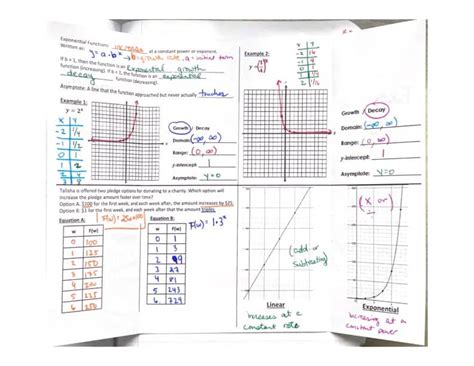 Exponential Functions: increase at a constant power or exponent.
Written as: y = a·b^x b = growth rate, a = initial term
If b > 1, then the function is an Exponential growth
function (increasing). If b < 1, the function is an exponential
decay function (decreasing).
Asymptote: A line that the function approached but never actually touches
Example 1:
y = 2^x
x y
-2 1/4
-1 1/2
0 1
1 2
2 4
3 8
Growth / Decay
Domain: (-∞, ∞)
Range: (0, ∞)
y-intercept: 1
Asymptote: y=0
Example 2:
x y
-2 16
-1 4
0 1
1 1/4
2 1/16
Growth / Decay
Domain: (-∞, ∞)
Range: (0, ∞)
y-intercept: 1
Asymptote: y=0
Talisha is offered two pledge options for donating to a charity. Which option will
increase the pledge amount faster over time?
Option A: $100 for the first week, and each week after, the amount increases by $25.
Option B: $1 for the first week, and each week after that the amount triples.
Equation A: F(w) = 25w+100
w F(w)
0 100
1 125
2 150
3 175
4 200
5 225
6 250
Equation B: F(w) = 1·3^x
w F(w)
0 1
1 3
2 9
3 27
4 81
5 243
6 729
(add or
subtracting)
Linear
Increases at a
constant rate
(x or
Exponential
Increasing at a
constant power